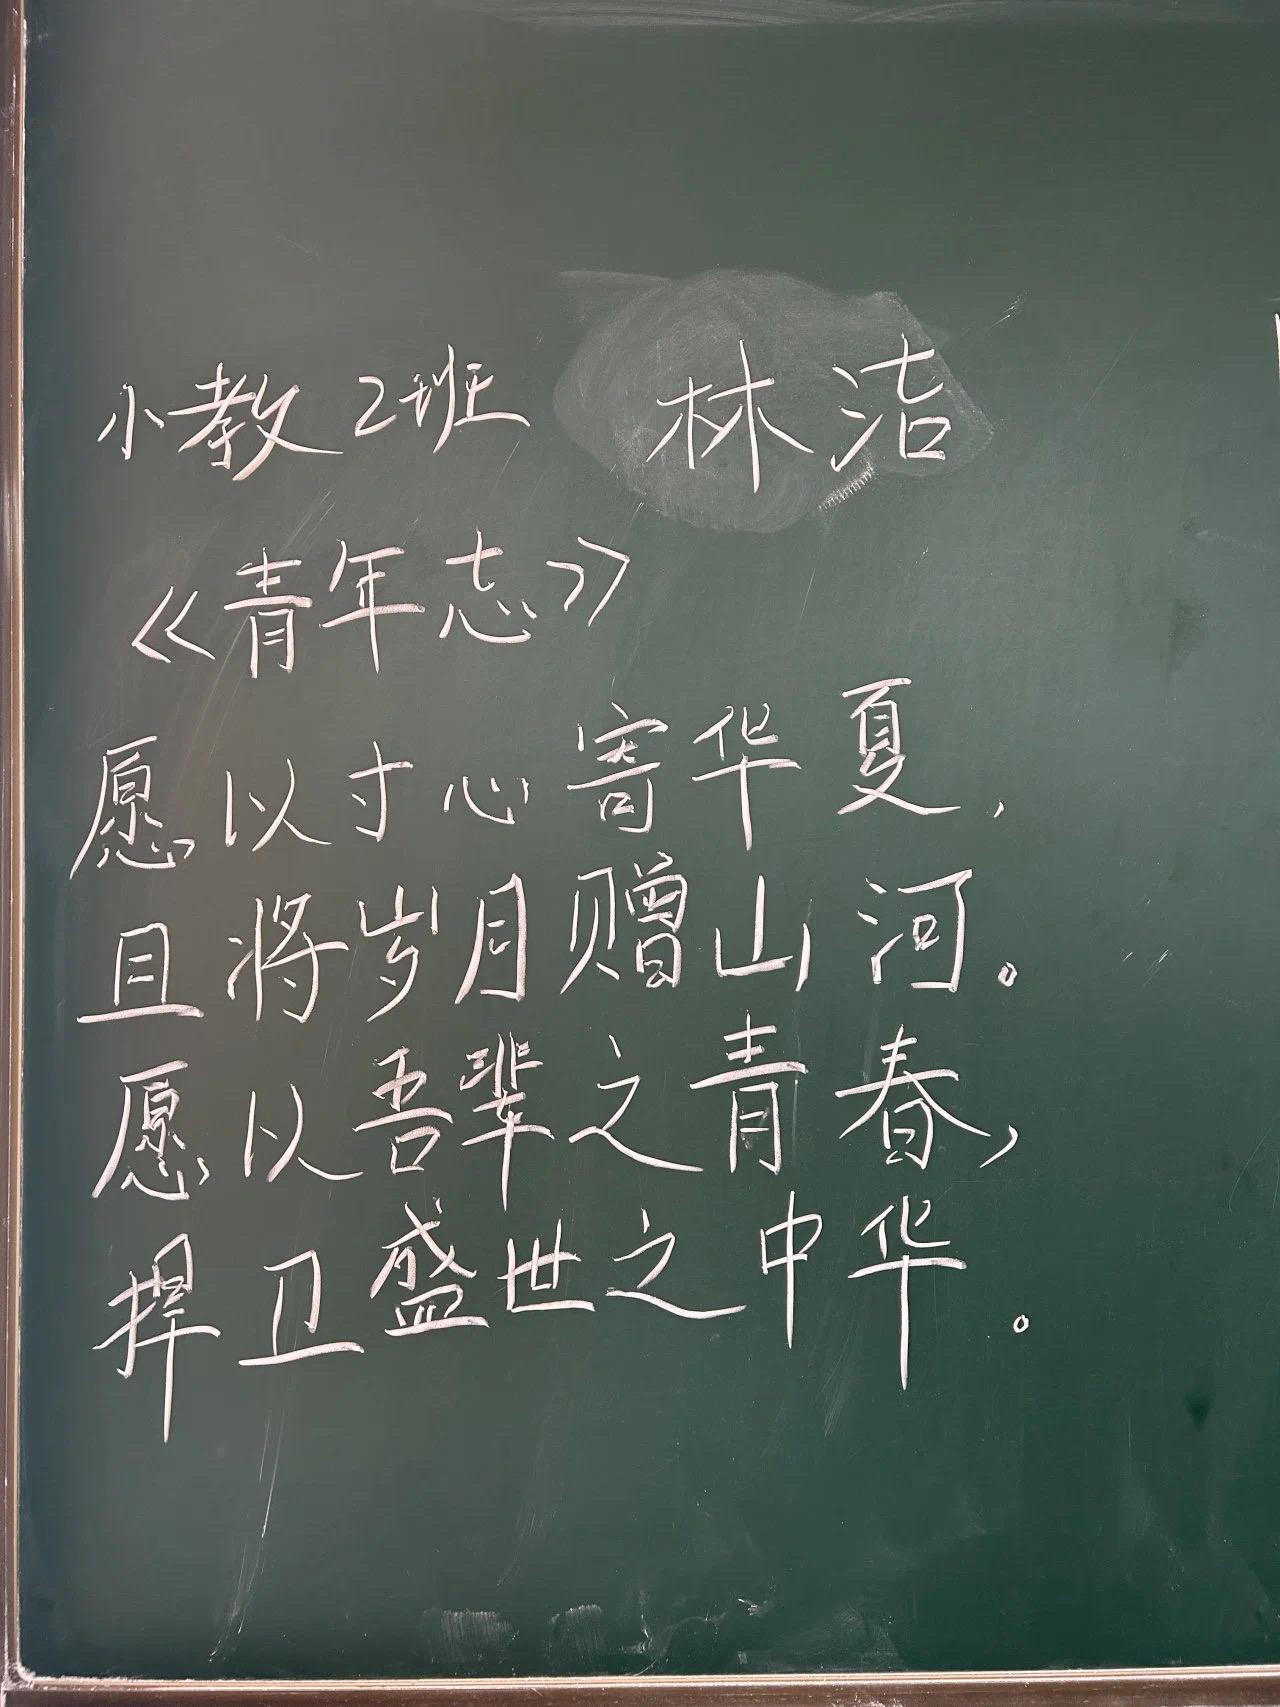 小教2班 林洁
《青年志》
愿以寸心寄华夏，
且将岁月赠山河。
愿以吾辈之青春，
捍卫盛世之中华。